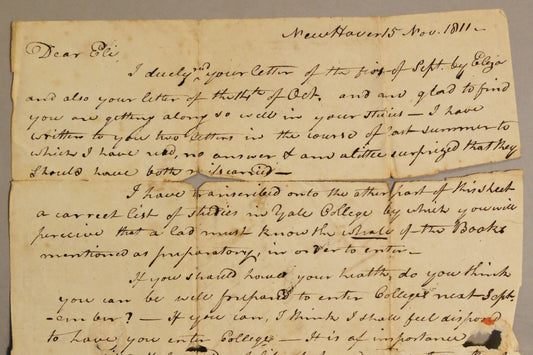 New Haven 15 Nov. 1811 –
Dear Eli,
I duely recd your letter of the first of Sept. by Eliza
and also your letter of the of Oct. and am glad to find
you are getting along so well in your studies – I have
written to you two letters in the course of last summer to
which I have recd, no answer, & am a little surprized that they
should have both miscarried –
I have transcribed onto the other part of this sheet
a correct list of studies in Yale College by which you will
perceive that a lad must know the whole of the Books
mentioned as preparatory, in order to enter –
If you should have your health, do you think
you can be well prepared to enter College next Sept-
-ember? – If you can, I think I shall feel disposed
to have you enter College – It is of importance